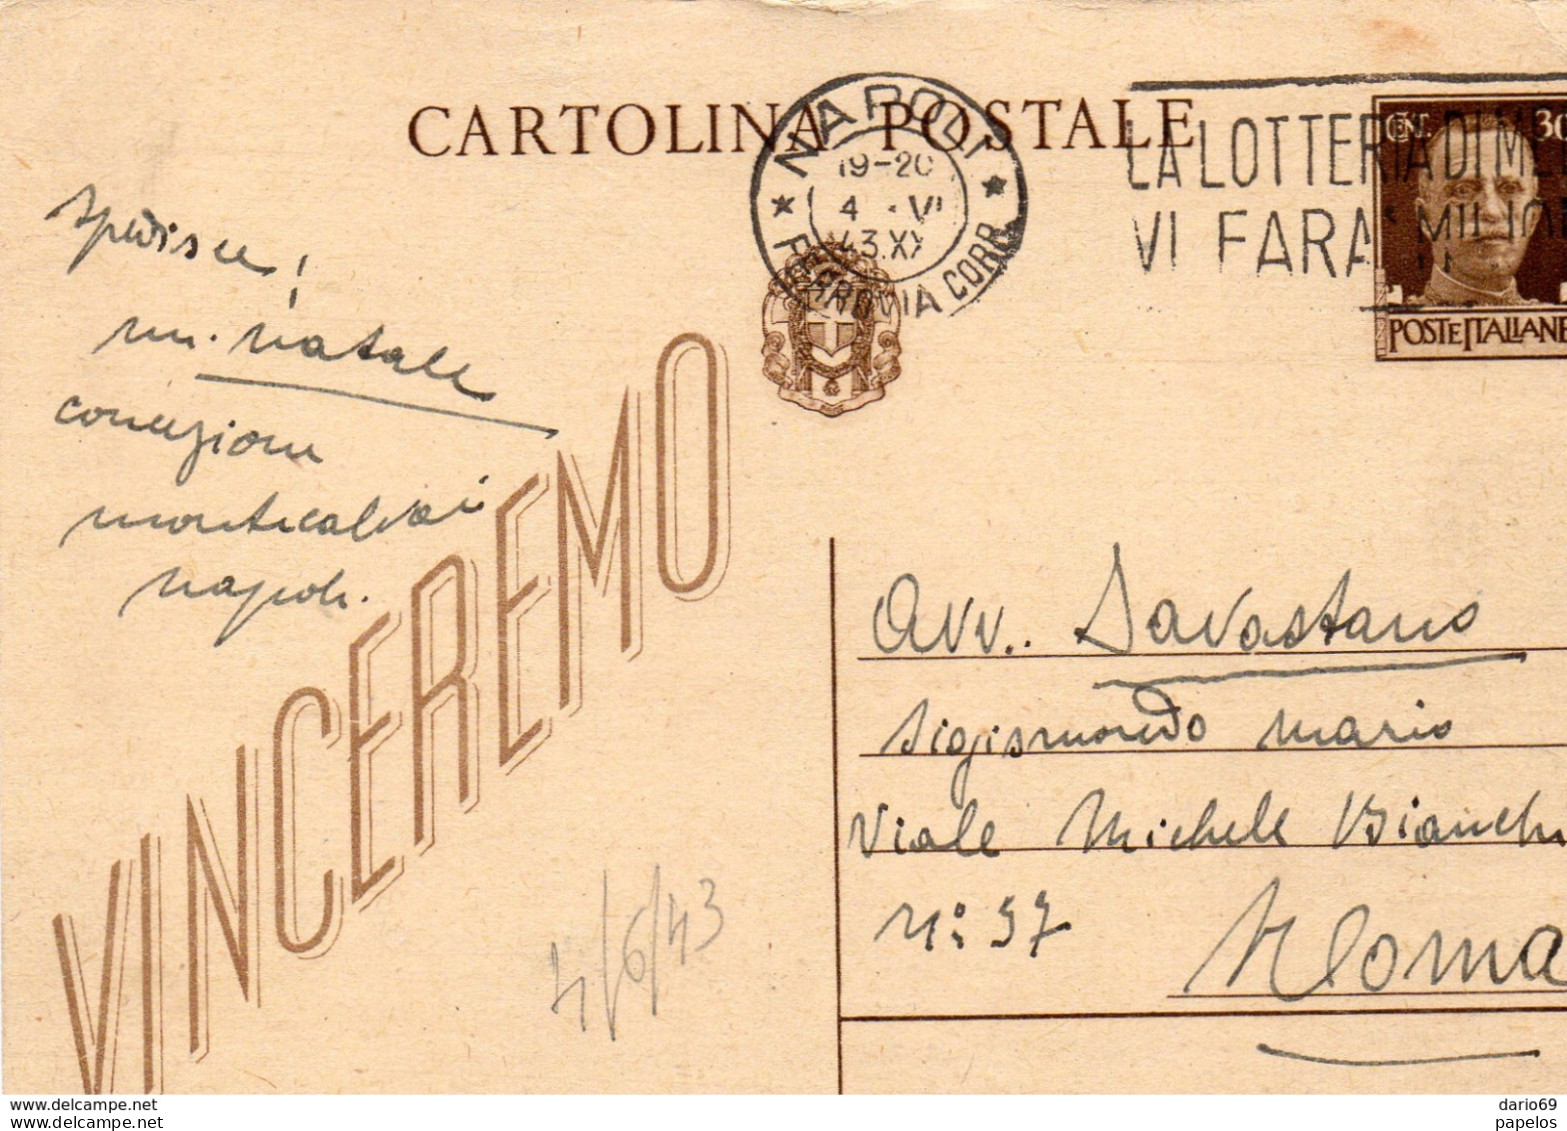 CARTOLINA POSTALE
NAPOLI
19-20
4 . VI
43.XX
FERROVIA CORR.
LA LOTTERIA DI ME
VI FARA' MILIO
CENT. 30
POSTE ITALIANE
Spedisce!
m. natale
concezione
montecalvai
napoli.
VINCEREMO
Avv.. Savastano
Sigismondo Mario
Viale Michele Bianchi
N°: 37
Roma
4/6/43
my-live-collection.com
papelos.com
dario69
papelos